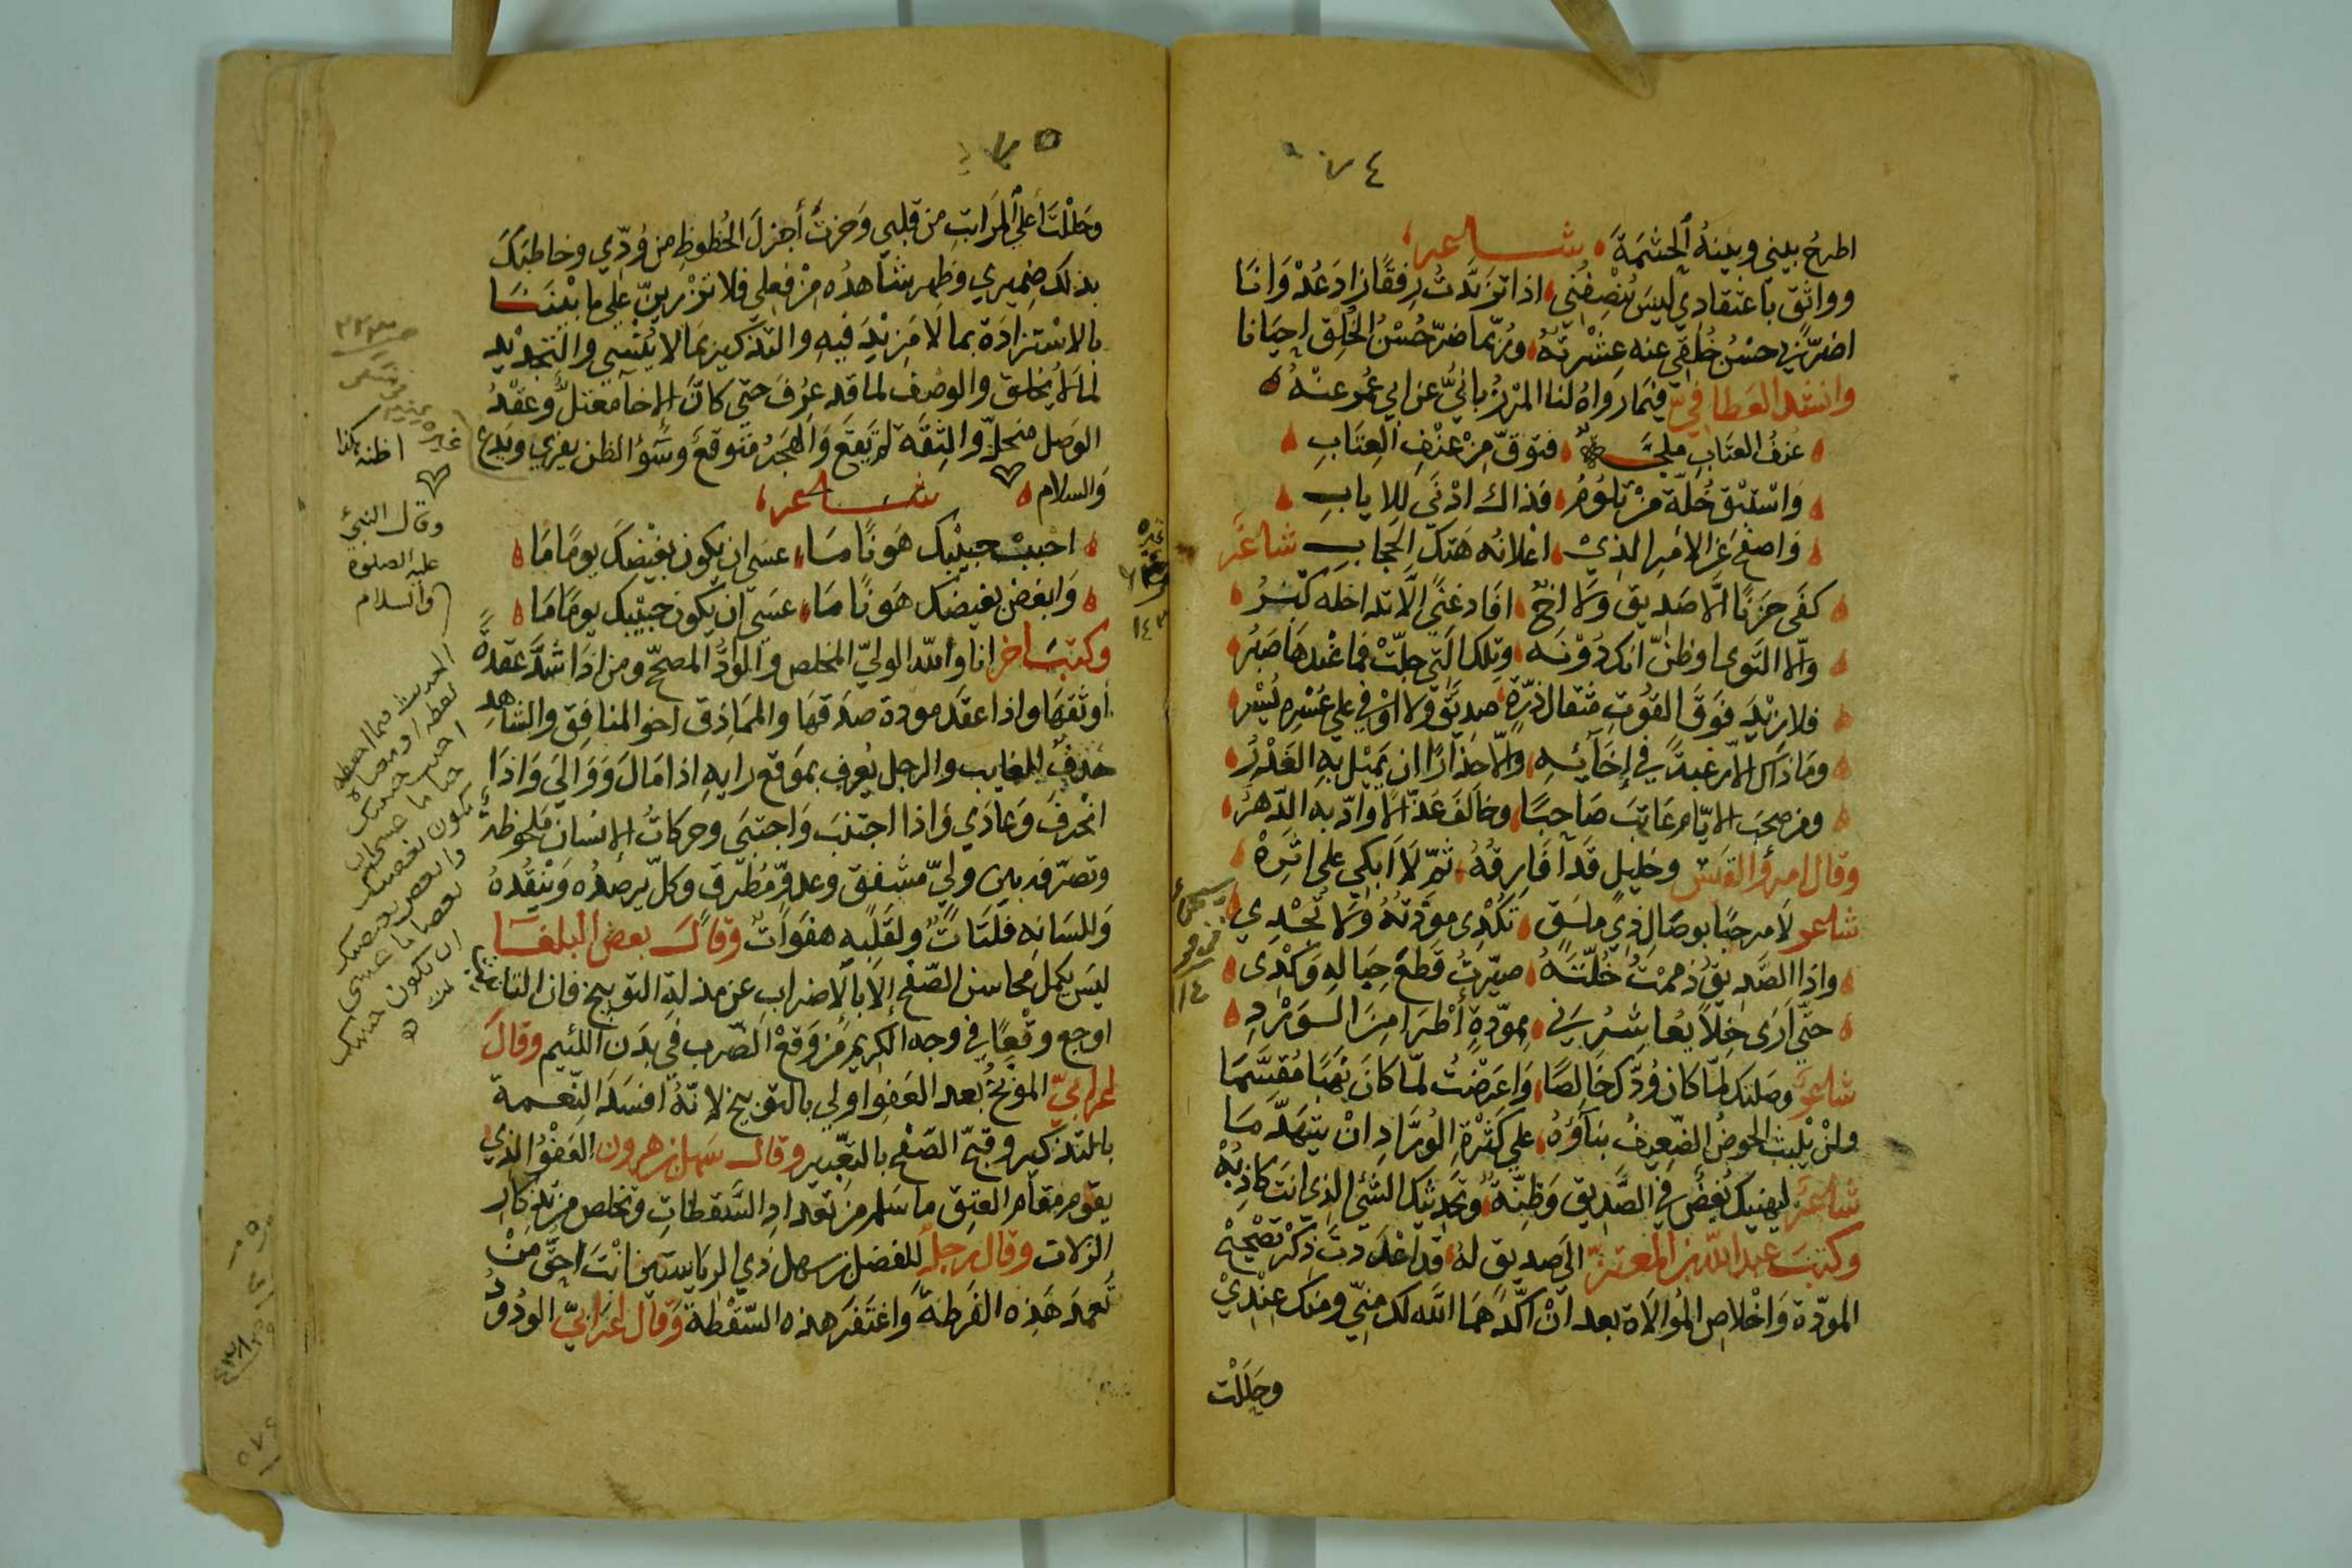 ٧٤
اطرحُ بيني وبينهُ الحشمَةَ شاعر
وواثق باعتقادي ليسَ يُنْصِفُني اذا تزيَّدتُ رِفقًا زادَ عُدْوَانَا
اضرّ بي حسْنُ خُلقي عنه عِشْرتِهُ وربّما ضرّ حُسْنُ الخُلْق احيَانا
وانشد العطافيّ فيما رواهُ لنا المرزبانيُّ عن ابي عُمر عنْهُ
عُنفُ العتَابِ فتوقّ مِنْ عنْفِ العِتَابِ
وَاسْتَبْقِ خُلّة مَنْ تَلُومُ فذاك ادْنَى لِلايابِ
وَاصفَح عن الامْرِ الذيْ اعلانُه هَتكُ الحِجابِ شاعر
كفَى حَزنًا الَّا صديق وَلا اخٌ افَاد غنًى الَّا تداخله كِبْرُ
والّا التَوى او ظنّ انك دُوْنَه وتلك الَّتي جلّتْ فما عندها صَبْرُ
فلا زيْدَ فَوقَ القُوتِ مثقال ذرّةٍ صديقٌ ولا اوْفى على عُسْرهِ يُسْر
ومَا ذاك الّا رغبةً في إخَائِهِ والّا حذارًا ان يَمِيْل بهِ الغَدْرُ
ومن صحبَ الايّام عَاتبَ صَاحبًا وحَالَفَ عَذْلًا او ادّبه الدّهرُ
وقال امرؤ القيس وخليلٍ قد اُفَارِقُهُ ثمّ لَا ابكي على اثَرِهْ
شاعر لا مرحبًا بوصَال ذي ملَق تكدى مودّتهُ وَلا تُجْدِي
واذا الصَّديقُ ذممْتُ خُلّتَهُ صيّرتُ قَطعَ حِبَالهِ وَكْدِى
حتّى اَرَى خِلًّا يُعاشِرُني بمودّةٍ أَطرَا مِنَ الوَرْدِ
شاعر وصلتك لمّا كان وُدّك خَالِصًا وَاعرضتُ لمّا كانَ نَهْبًا مُقسَّمَا
ولنْ يْلبث الحوضُ الضّعِيفُ بنآؤهُ على كَثرةِ الوُرَّادِ انْ يتهَدَّمَا
شاعر ليهنِيك بُغضٌ في الصَّديق وَظِنّةٌ وتحديثك الشيْ الذي انتَ كاذِبُهْ
وكتبَ عبد الله بن المعتزّ الى صديق لهُ قد اعَدْتَ ذكْر تصْحيْحِ
المودّة وَاخْلاصِ المُوالاة بعد انْ اكّدَهمَا الله لك منّي ومنك عِنْدِيْ
وحَلَلْت
٧٥
وحَلَلْتَ اعلى المرَاتبِ من قلبي وَحزتَ أجزلَ الحُظوظِ من وُدّي وخاطبَكَ
بذلك ضميري وظهر شاهدُه مِنْ فعلي فلا تزْرينّ على ما بيْننَا
بالاسْتزادَة بما لَا مَزيْدَ فيهِ والتذكير بمَا لا يُنْسى والتجديْد
لمَا لا يُخلق والوصْف لما قد عرُفَ حتّى كانَّ الاخا معتلٌ وعقْدُ
الوَصل منحلٌّ والثِقَة لم يقع وَالهجرُ متوقع وَسُوءُ الظن يفري ويدع
وَالسلام شاعر
احْببْ حبيْبك هَونًا مَا عسَى ان يكون بغيْضَك يومًا مَا
وَابغض بغيضك هَونًا مَا عسَى ان يكونَ حبيْبك يومًا مَا
وكتبَ اخر انا والله الوليّ المخلص والوادُّ المصحّح ومن اذَا شدَّ عقدةً
أوثقهَا واذا عقدَ مودة صدَقهَا والمماذِق اخو المنافِق والشاهِدِ
حذفٌ للغايب والرجل يُعرف بمَوقع رايهِ اذا مَالَ وَوَالَى وَاذَا
انْحرفَ وَعادَى وَاذا اجتنبَ وَاجتبَى وحركاتُ الإنسَان ملحوظةٌ
وتصرّفه بين وليّ مشفق وعدوّ مُطرق وكل يرصدُه وَيَنْقُدهُ
وَللسَانه فلتَاتٌ ولقلبِه هفوَاتٌ وقالَ بعض البلغا
ليسَ يكمل محَاسن الصّفحِ إلّا بالإضرابِ عن مذلةِ التوبيخ فان التانيب
اوجع وقْعًا في وجه الكريم من وَقعْ الضّربِ في بدَن اللئيم وقالَ
اعرابيّ الموَبِّخُ بعد العَفوِ اولى بالتوبيخ لانّهُ افسَد النِعمة
بالتذكير وقبحّ الصَفح بالتعيير وقال سهل بن هرون العَفْوُ الذيْ
يقوم مقَام العتِق ما سَلم من تعدادِ السَّقطَاتِ وتخلص من تذكَارِ
الزلات وقال رجلٌ للفضل بن سهل ذي الرياستين انْتَ احَقّ مِنْ
تعمدَ هَذِه الفَرطَةَ وَاغتَفرَ هذه السّقْطةَ وَقال اعرَابيّ الودُودُ
غيره
اظنه هكذا
وقال النبيّ
عليه الصلوة
والسلام
احبب حبيبك
هونا ما عسى ان
يكون بغيضك
ان يكون حبيبك
غيره
١٤٣
١١٤